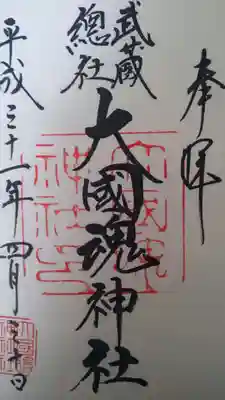 奉拝
武蔵
總社
大國魂神社
平成三十一年四月三十日